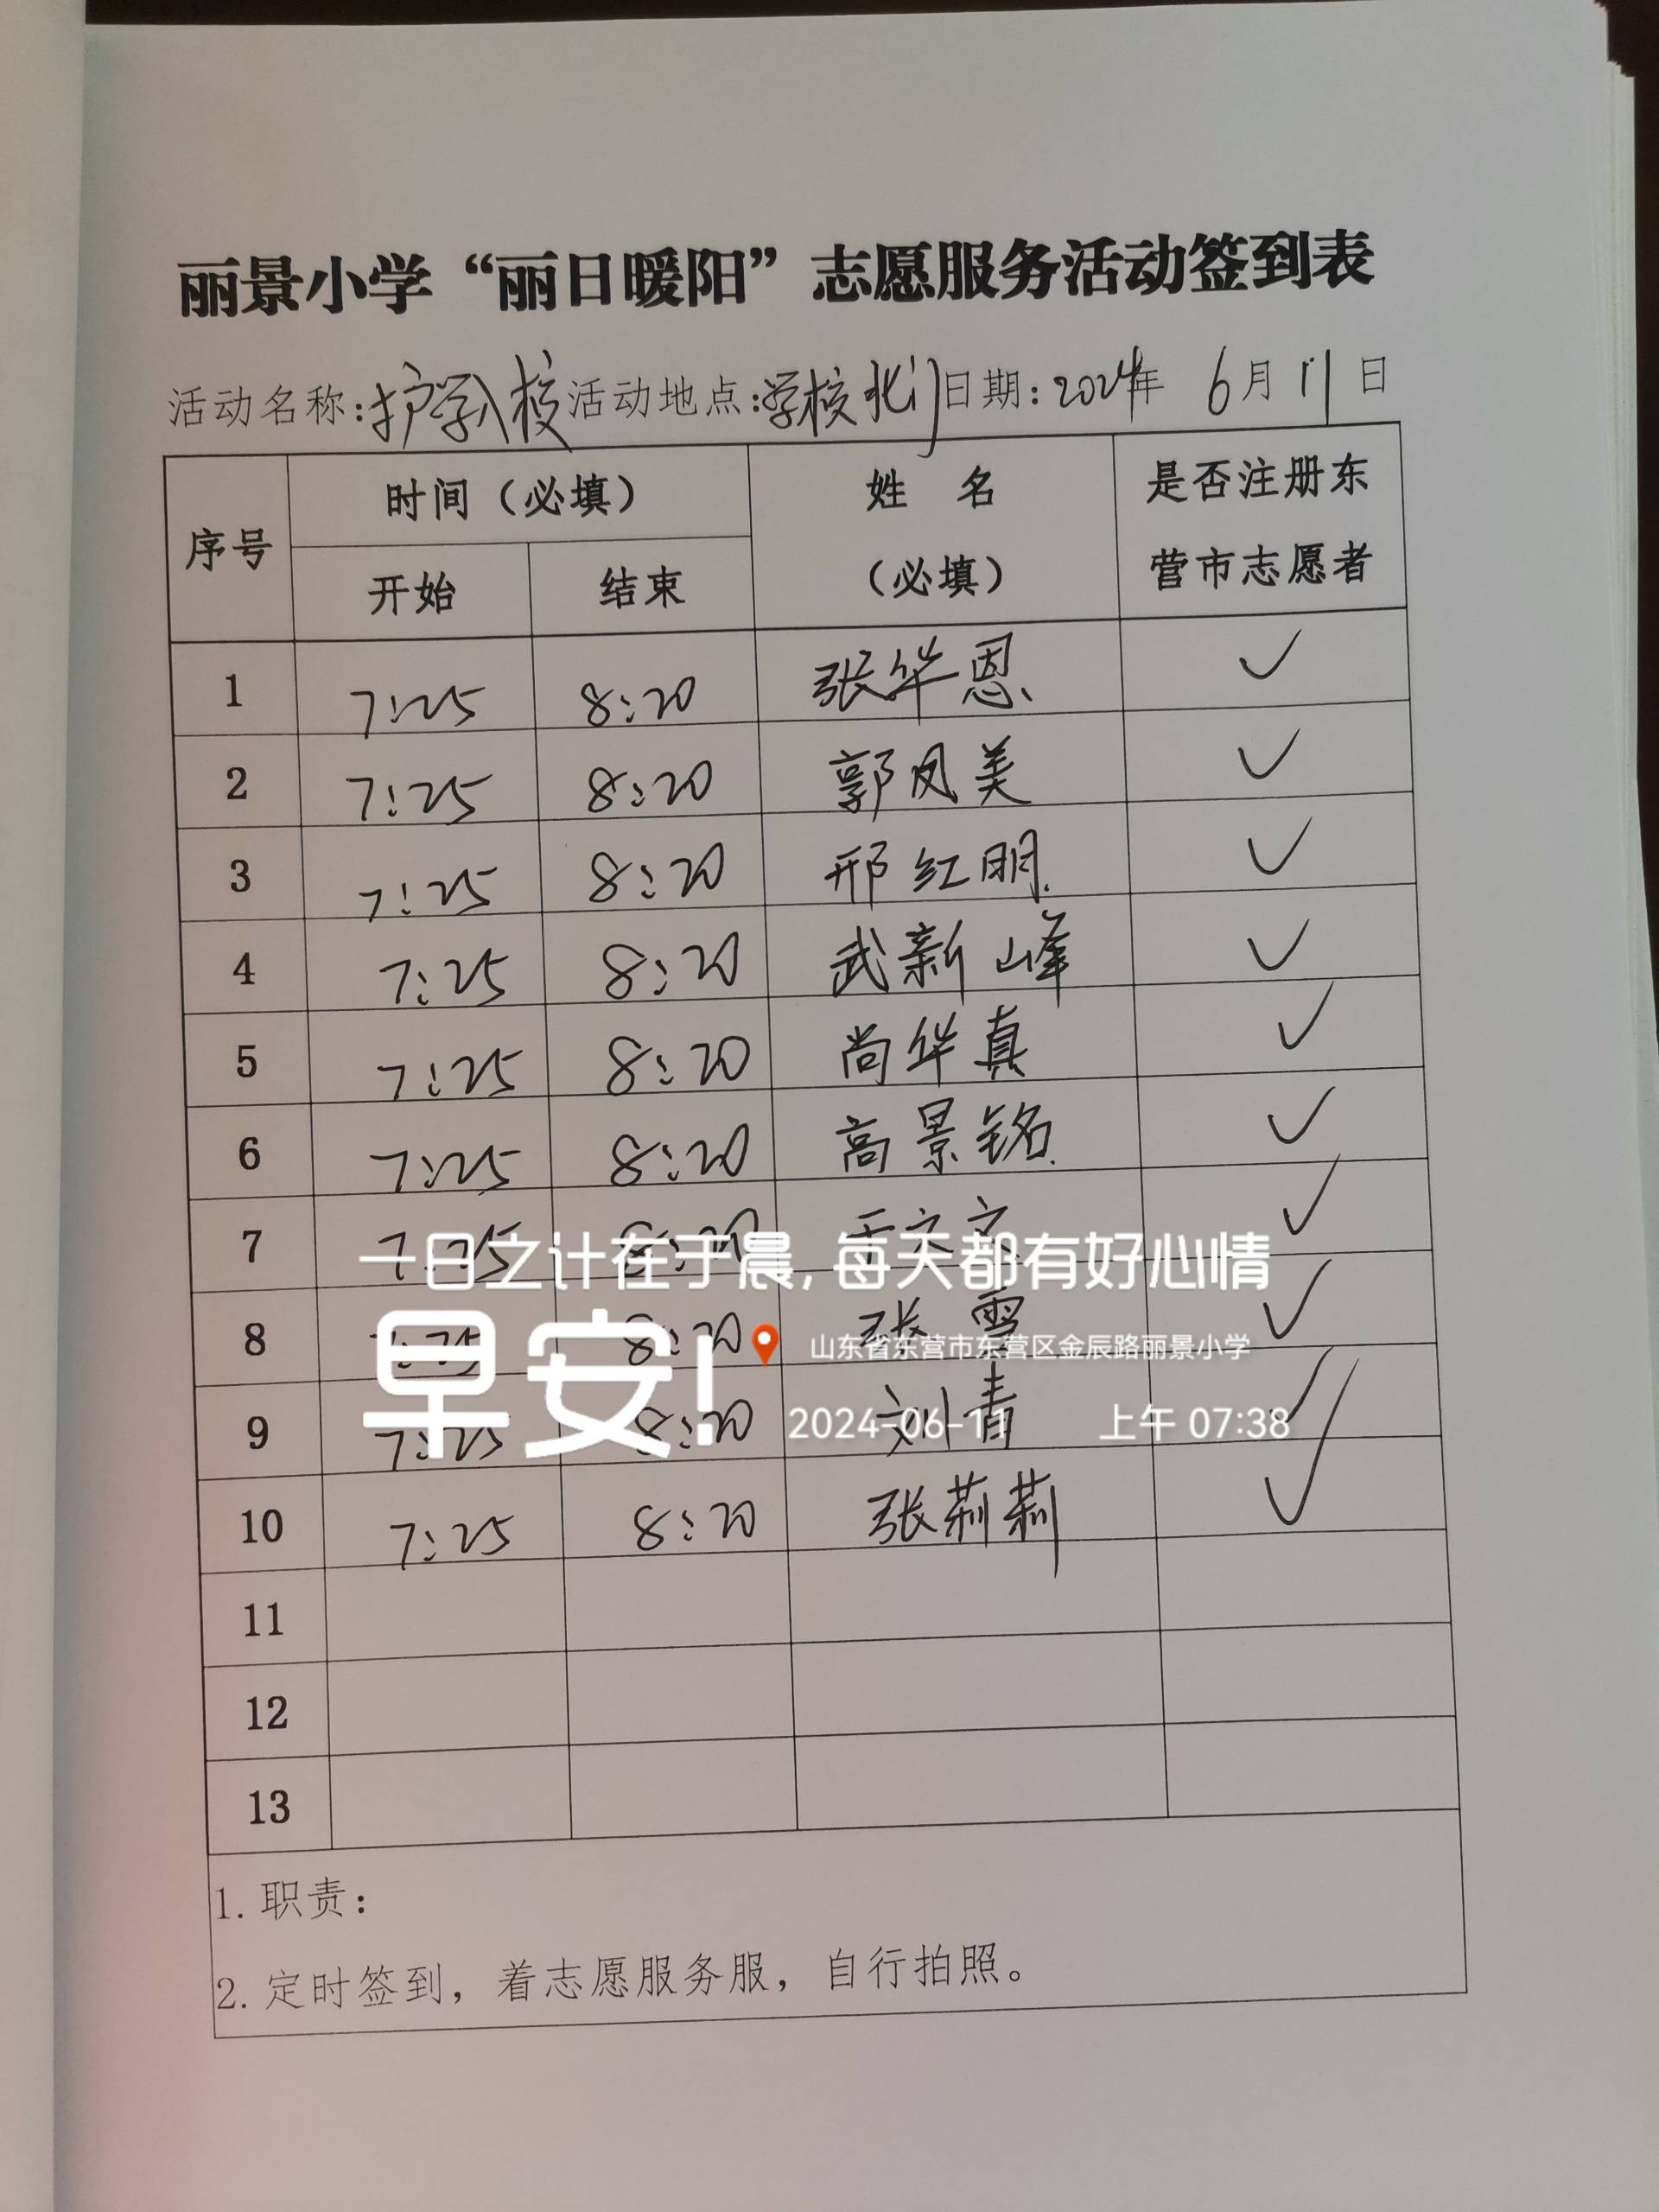 丽景小学“丽日暖阳”志愿服务活动签到表
活动名称:护学入校 活动地点:学校北门 日期:2024年 6月11日
序号 时间(必填) 姓 名 (必填) 是否注册东营市志愿者
开始 结束
1 7:25 8:20 张华恩 ✓
2 7:25 8:20 郭凤美 ✓
3 7:25 8:20 邢红明 ✓
4 7:25 8:20 武新峰 ✓
5 7:25 8:20 尚华真 ✓
6 7:25 8:20 高景铭 ✓
7 7:25 8:20 ✓
一日之计在于晨,每天都有好心情
8 7:25 8:20 张雪 ✓
早安!
山东省东营市东营区金辰路丽景小学
9 7:25 8:20 刘青 ✓
2024-06-11 上午 07:38
10 7:25 8:20 张莉莉 ✓
11
12
13
1. 职责:
2. 定时签到,着志愿服务服,自行拍照。